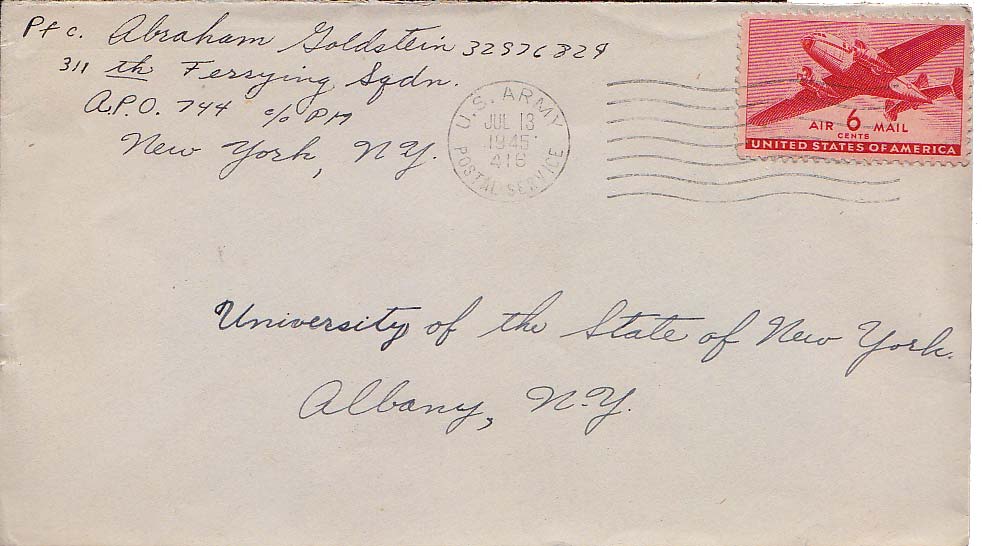 Pfc. Abraham Goldstein 32976824
311 th Ferrying Sqdn.
A.P.O. 744 c/o PM
New York, N.Y.
U.S. ARMY
JUL 13
1945
416
POSTAL SERVICE
AIR 6 MAIL
CENTS
UNITED STATES OF AMERICA
University of the State of New York.
Albany, N.Y.